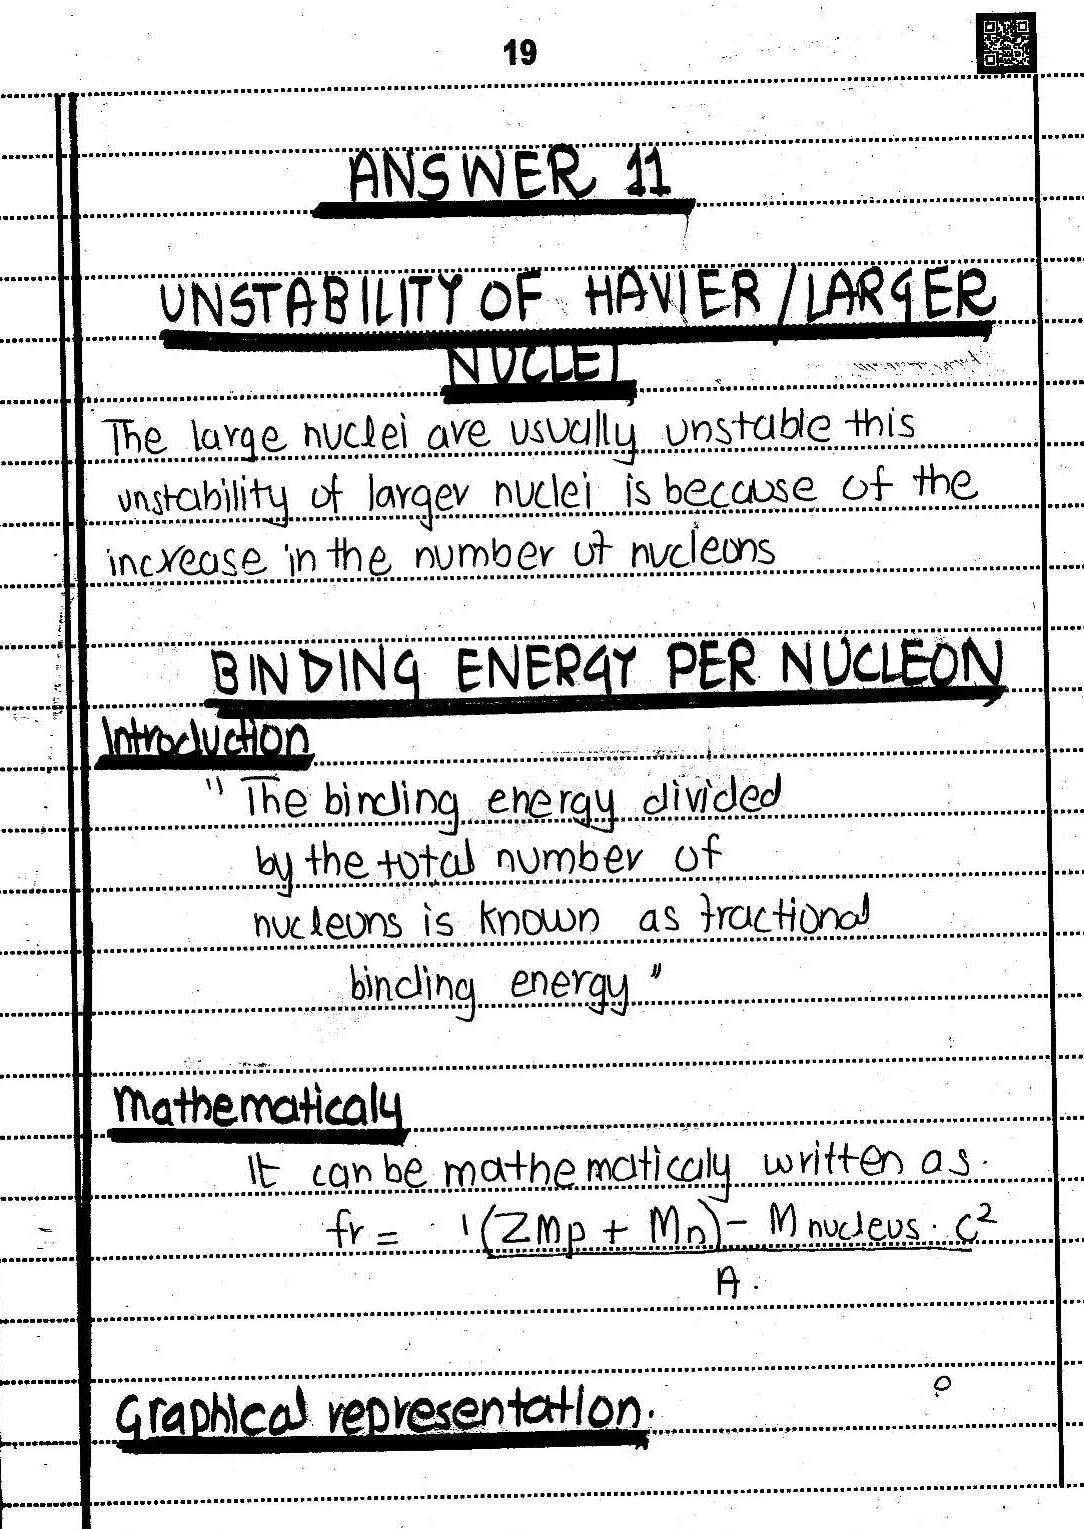 19
ANSWER 11
UNSTABILITY OF HAVIER / LARGER
NUCLEI
The large nuclei are usually unstable this
unstability of larger nuclei is because of the
increase in the number of nucleons
BINDING ENERGY PER NUCLEON
Introduction
" The binding energy divided
by the total number of
nucleons is known as fractional
binding energy "
Mathematicaly
It can be mathematicaly written as.
fr = 1(ZMp + Mn) - M nucleus . C²
A.
Graphical representation.